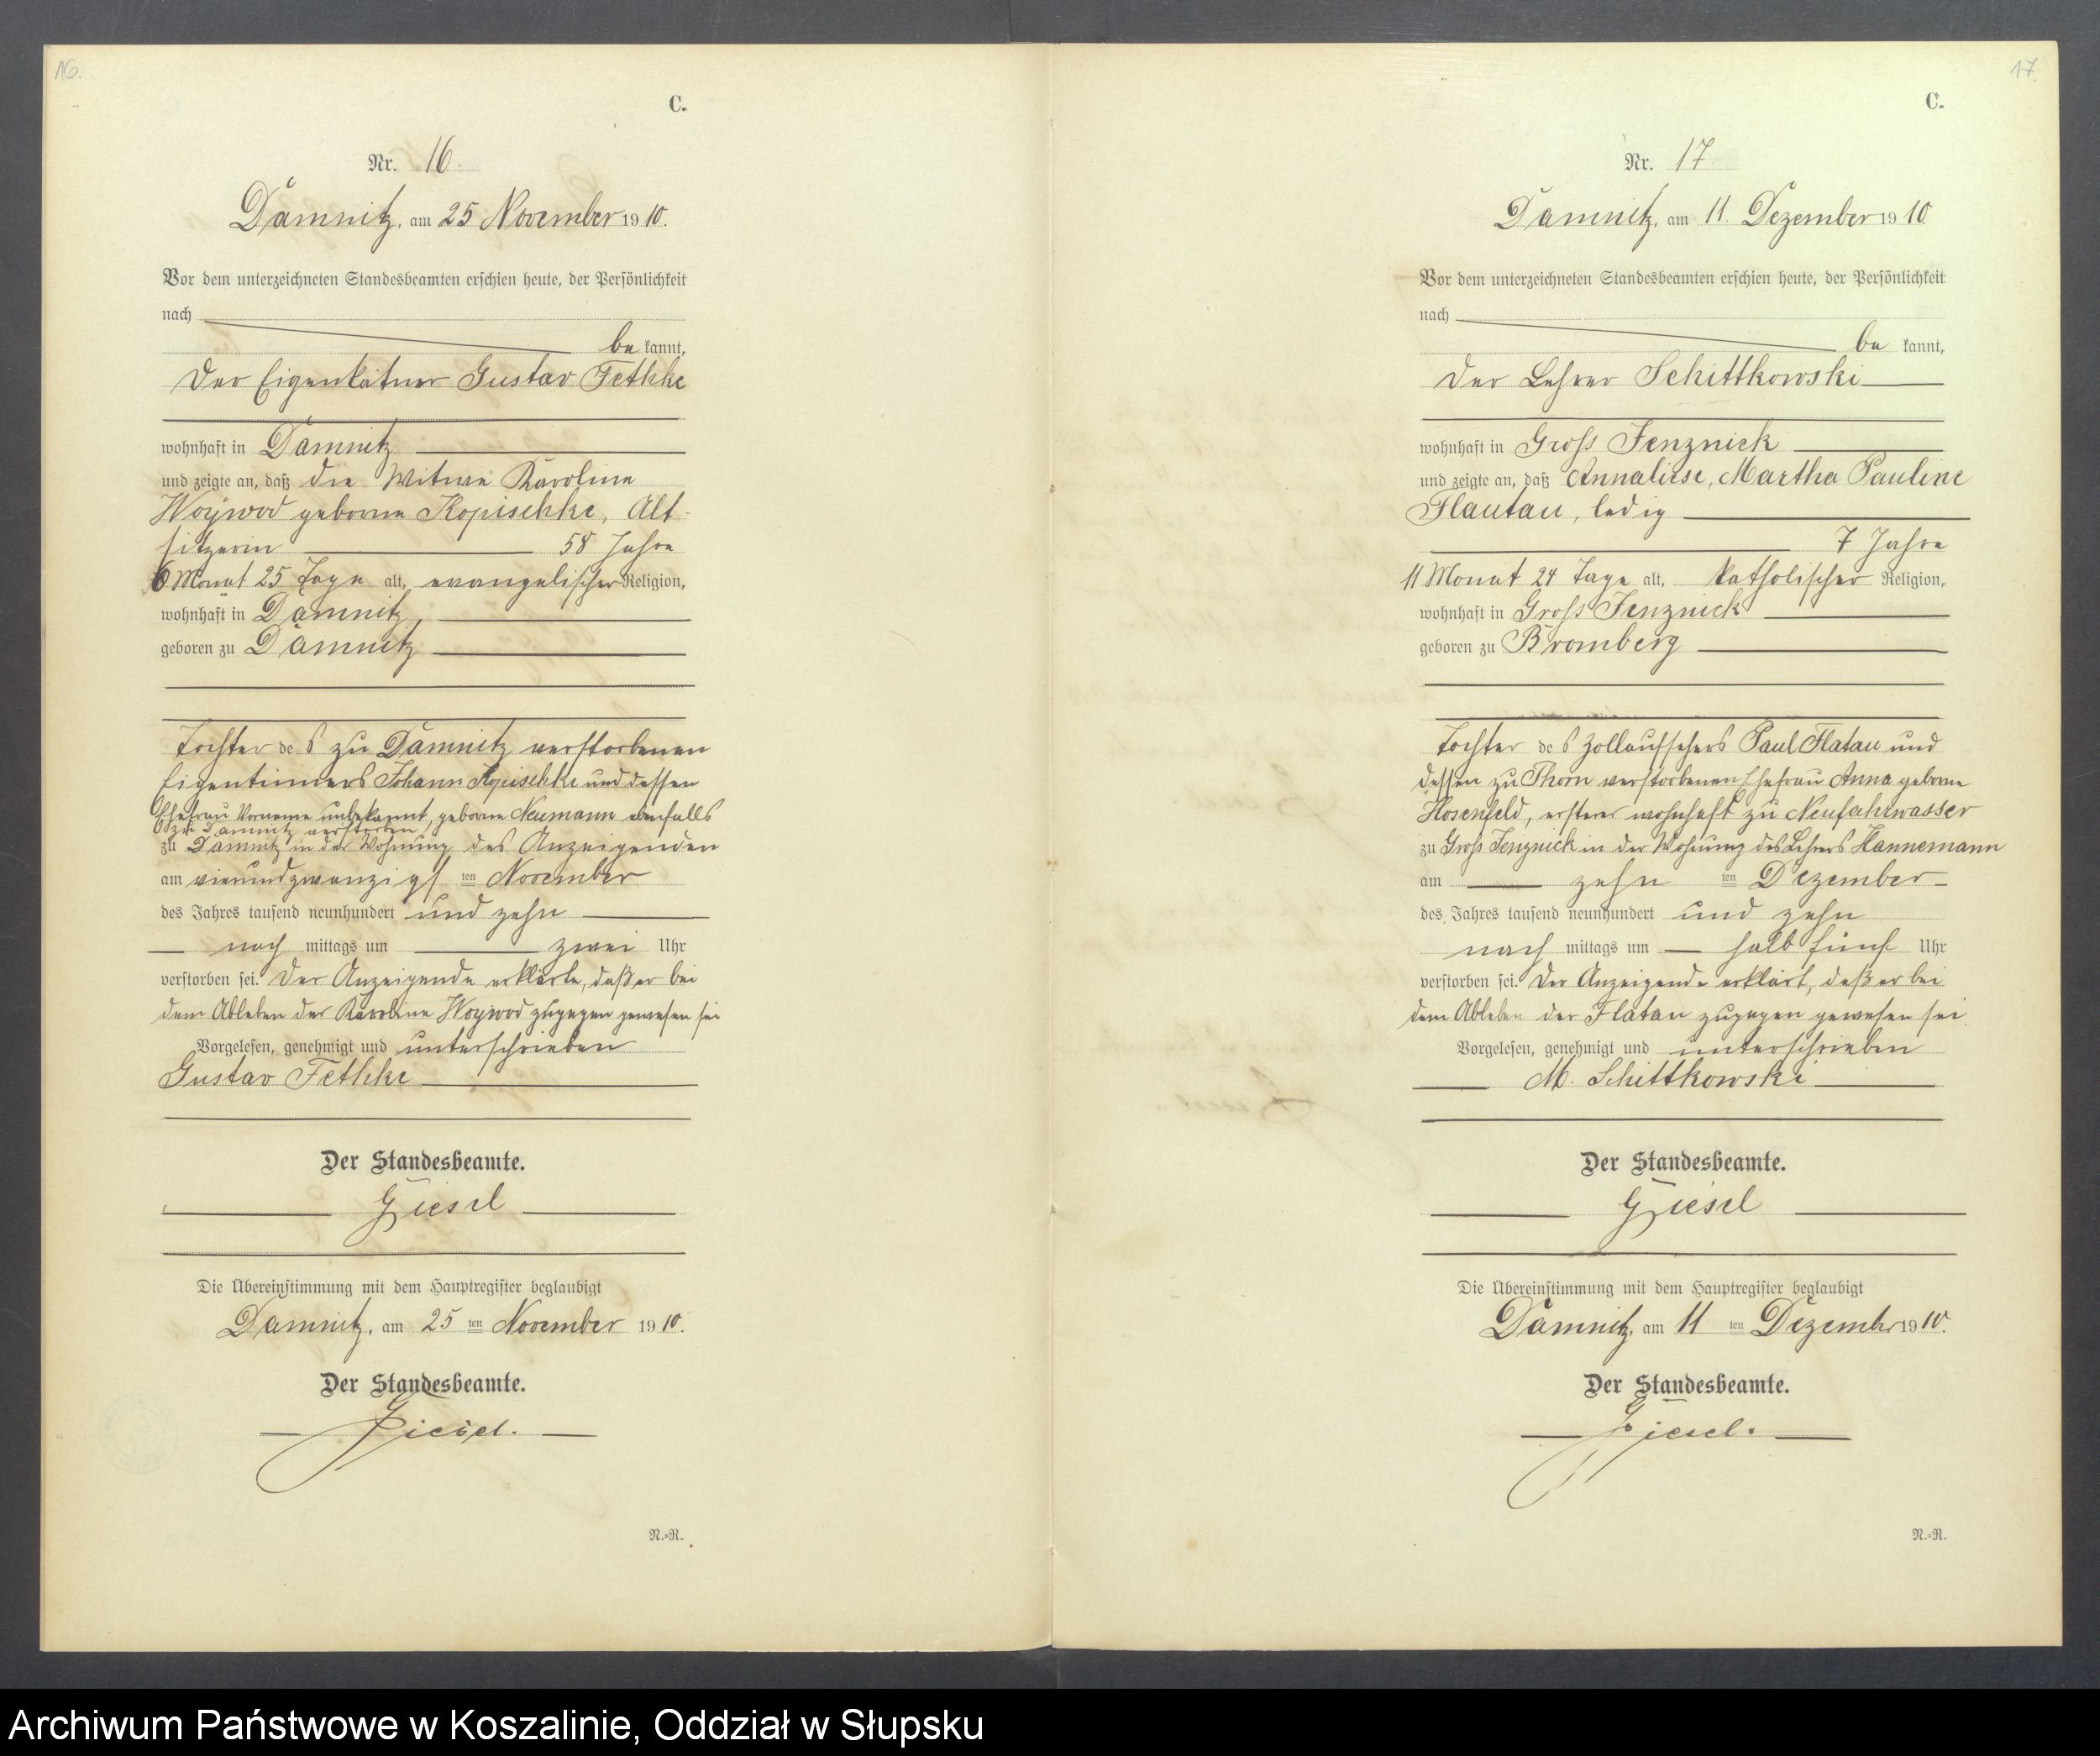 16.
C.
Nr. 16.
Damnitz, am 25 November 1910.
Vor dem unterzeichneten Standesbeamten erschien heute, der Persönlichkeit
nach
bekannt,
der Eigenkätner Gustav Fethke
wohnhaft in Damnitz
und zeigte an, daß die Witwe Karoline
Woywod geborne Kopischke, Alt-
sitzerin 58 Jahre
6 Monat 25 Tage alt, evangelischer Religion,
wohnhaft in Damnitz,
geboren zu Damnitz
Tochter des zu Damnitz verstorbenen
Eigentümers Johann Kopischke und dessen
Ehefrau Vorname unbekannt, geborne Neumann ebenfalls
zu Damnitz verstorben,
zu Damnitz in der Wohnung des Anzeigenden
am vierundzwanzigsten November
des Jahres tausend neunhundert und zehn
nach mittags um zwei Uhr
verstorben sei. Der Anzeigende erklärte, daß er bei
dem Ableben der Karoline Woywod zugegen gewesen sei
Vorgelesen, genehmigt und unterschrieben
Gustav Fethke
Der Standesbeamte.
Giesel
Die Übereinstimmung mit dem Hauptregister beglaubigt
Damnitz, am 25 ten November 1910.
Der Standesbeamte.
Giesel.
N.=R.
17.
C.
Nr. 17
Damnitz, am 11. Dezember 1910
Vor dem unterzeichneten Standesbeamten erschien heute, der Persönlichkeit
nach
bekannt,
der Lehrer Schittkowski
wohnhaft in Gross Jenznick
und zeigte an, daß Annaliese, Martha Pauline
Flautau, ledig
7 Jahre
11 Monat 24 Tage alt, katholischer Religion,
wohnhaft in Gross Jenznick
geboren zu Bromberg
Tochter des Zollaufsehers Paul Flatau und
dessen zu Thorn verstorbenen Ehefrau Anna geborne
Hosenfeld, ersterer wohnhaft zu Neufahrwasser
zu Gross Jenznick in der Wohnung des Lehrers Hannemann
am zehn ten Dezember
des Jahres tausend neunhundert und zehn
nach mittags um halb fünf Uhr
verstorben sei. Der Anzeigende erklärt, daß er bei
dem Ableben der Flatau zugegen gewesen sei
Vorgelesen, genehmigt und unterschrieben
M. Schittkowski
Der Standesbeamte.
Giesel
Die Übereinstimmung mit dem Hauptregister beglaubigt
Damnitz, am 11 ten Dezember 1910.
Der Standesbeamte.
Giesel.
N.=R.
Archiwum Państwowe w Koszalinie, Oddział w Słupsku